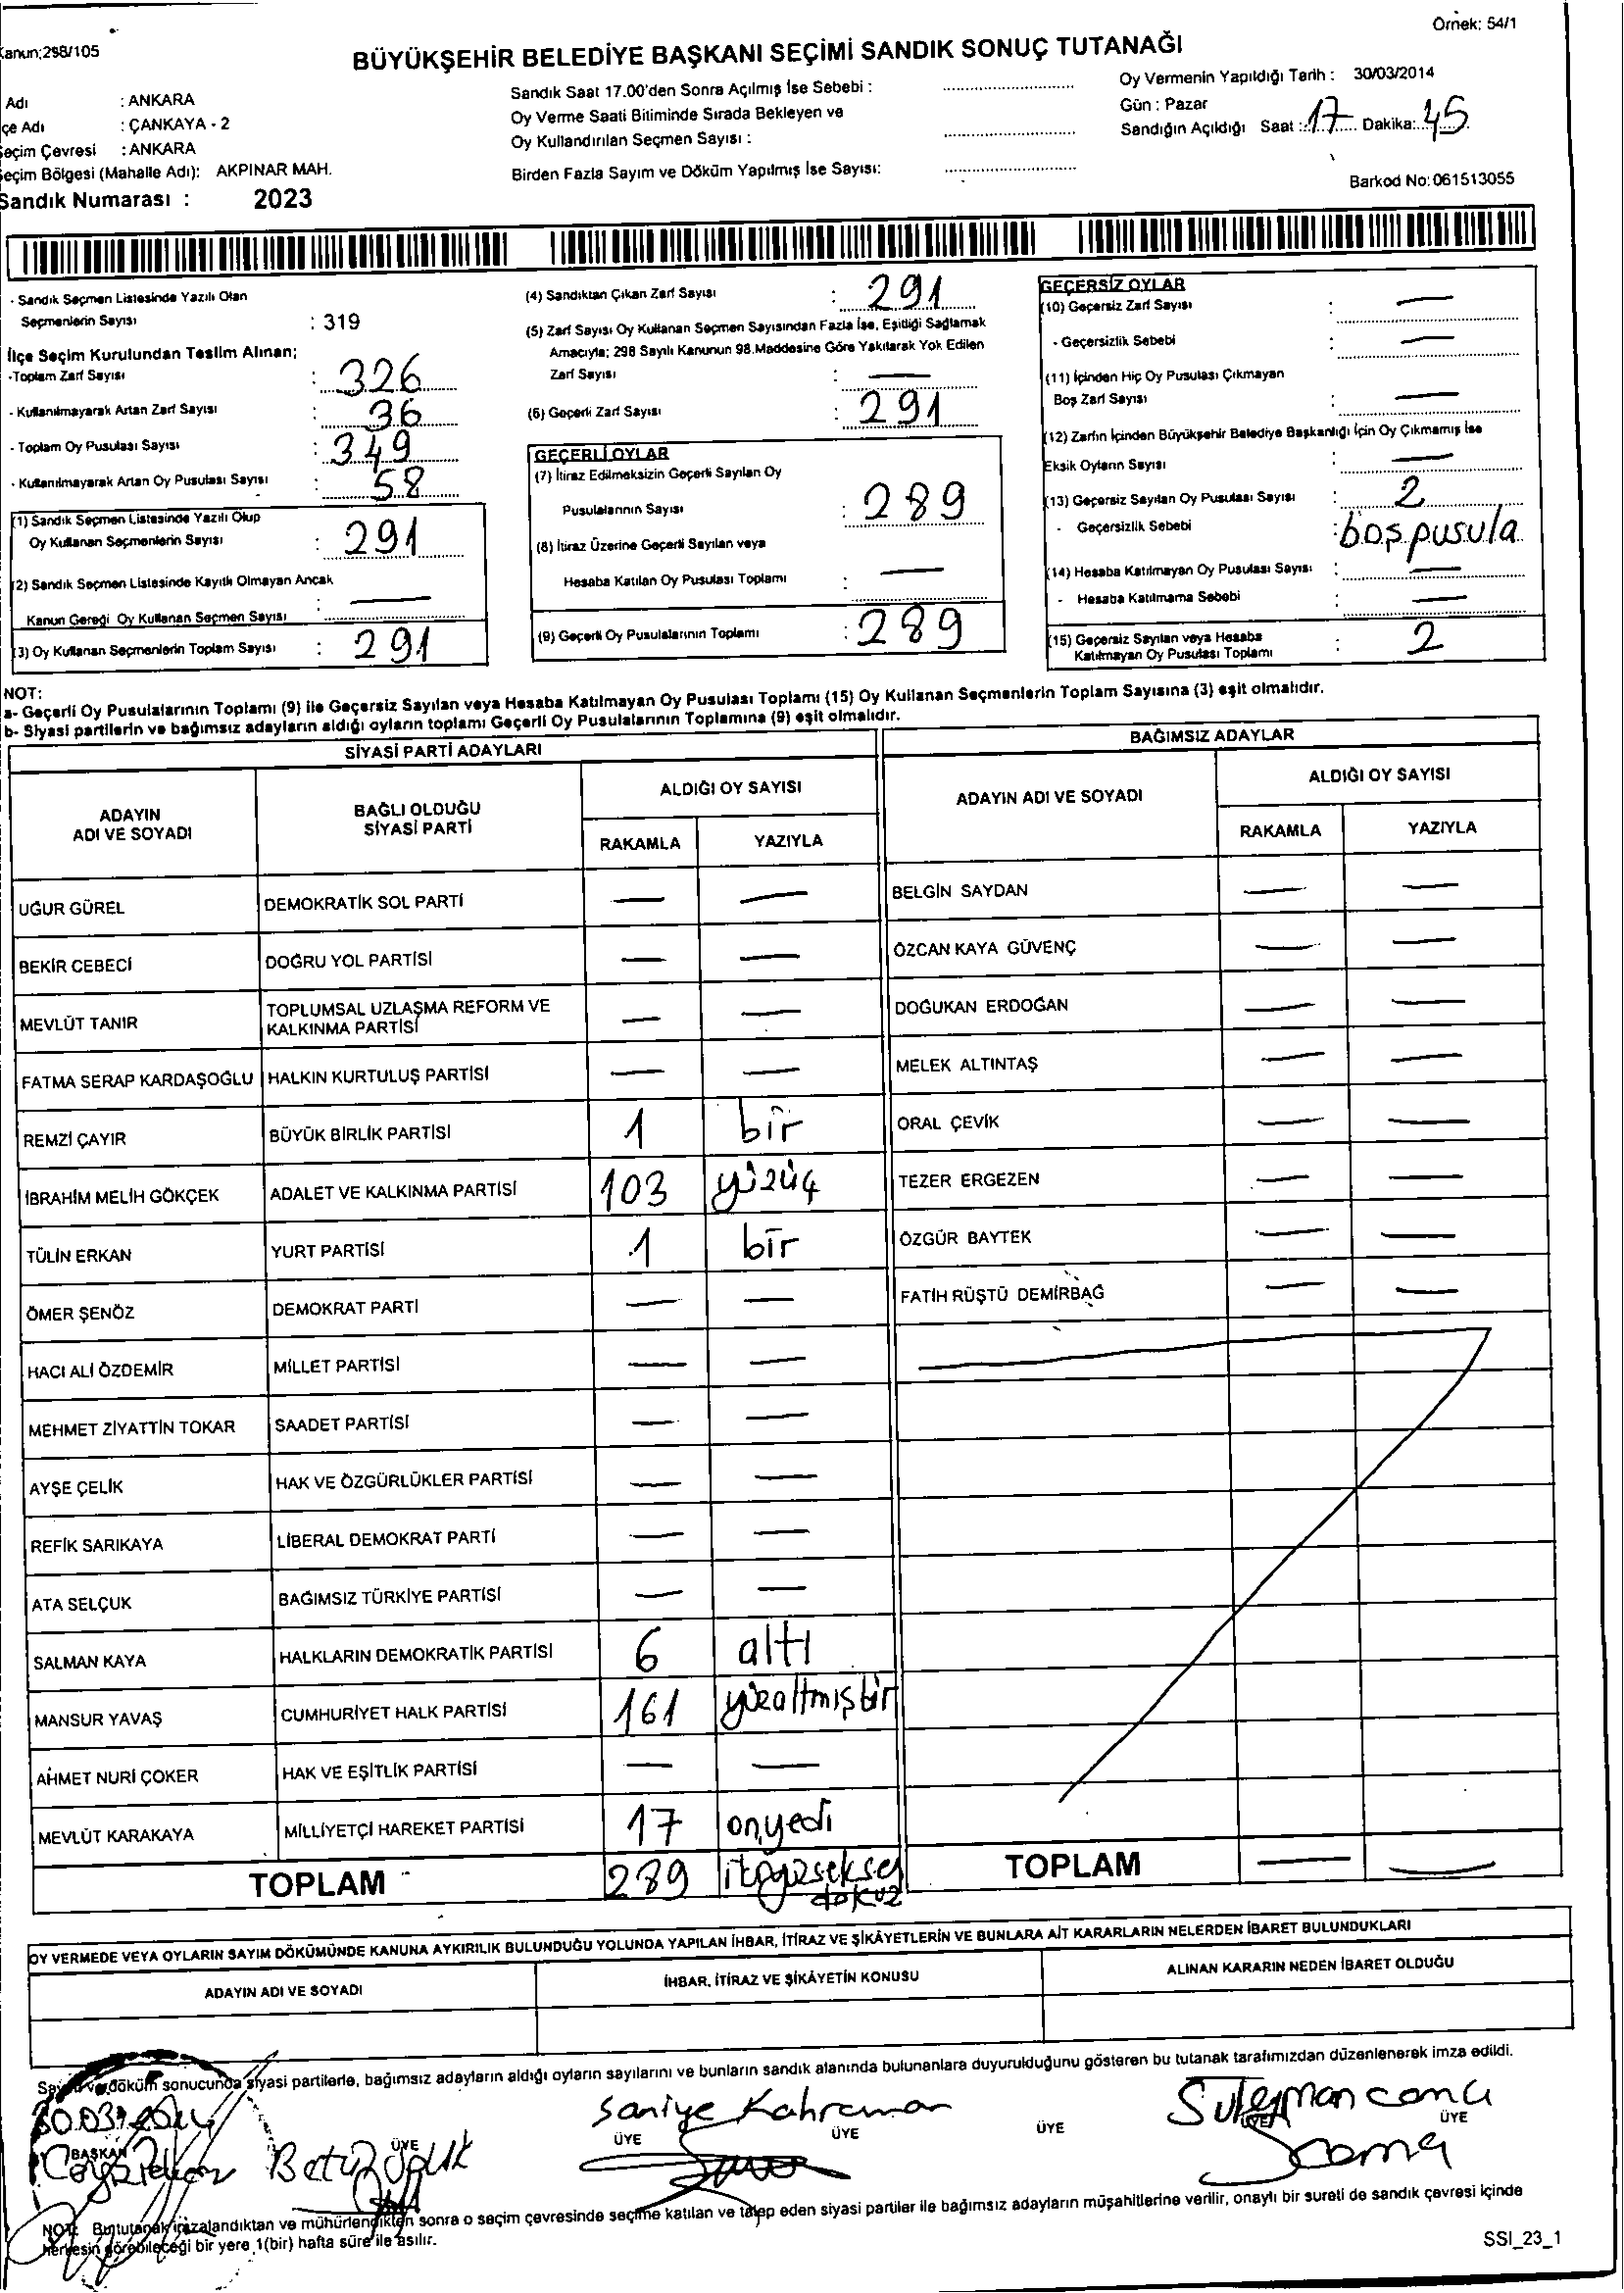 Örnek: 54/1
Kanun;298/105
BÜYÜKŞEHİR BELEDİYE BAŞKANI SEÇİMİ SANDIK SONUÇ TUTANAĞI
Adı : ANKARA
çe Adı : ÇANKAYA - 2
Seçim Çevresi : ANKARA
Seçim Bölgesi (Mahalle Adı): AKPINAR MAH.
Sandık Numarası : 2023
Sandık Saat 17.00'den Sonra Açılmış İse Sebebi :
Oy Verme Saati Bitiminde Sırada Bekleyen ve
Oy Kullandırılan Seçmen Sayısı :
Birden Fazla Sayım ve Döküm Yapılmış İse Sayısı:
Oy Vermenin Yapıldığı Tarih : 30/03/2014
Gün : Pazar
Sandığın Açıldığı Saat : 17 Dakika: 45
Barkod No: 061513055
- Sandık Seçmen Listesinde Yazılı Olan
Seçmenlerin Sayısı : 319
İlçe Seçim Kurulundan Teslim Alınan;
-Toplam Zarf Sayısı : 326
- Kullanılmayarak Artan Zarf Sayısı : 36
- Toplam Oy Pusulası Sayısı : 349
- Kullanılmayarak Artan Oy Pusulası Sayısı : 58
(1) Sandık Seçmen Listesinde Yazılı Olup
Oy Kullanan Seçmenlerin Sayısı : 291
(2) Sandık Seçmen Listesinde Kayıtlı Olmayan Ancak
Kanun Gereği Oy Kullanan Seçmen Sayısı : —
(3) Oy Kullanan Seçmenlerin Toplam Sayısı : 291
(4) Sandıktan Çıkan Zarf Sayısı : 291
(5) Zarf Sayısı Oy Kullanan Seçmen Sayısından Fazla İse, Eşitliği Sağlamak
Amacıyla; 298 Sayılı Kanunun 98.Maddesine Göre Yakılarak Yok Edilen
Zarf Sayısı : —
(6) Geçerli Zarf Sayısı : 291
GEÇERLİ OYLAR
(7) İtiraz Edilmeksizin Geçerli Sayılan Oy
Pusulalarının Sayısı : 289
(8) İtiraz Üzerine Geçerli Sayılan veya
Hesaba Katılan Oy Pusulası Toplamı : —
(9) Geçerli Oy Pusulalarının Toplamı : 289
GEÇERSİZ OYLAR
(10) Geçersiz Zarf Sayısı : —
- Geçersizlik Sebebi : —
(11) İçinden Hiç Oy Pusulası Çıkmayan
Boş Zarf Sayısı : —
(12) Zarfın İçinden Büyükşehir Belediye Başkanlığı İçin Oy Çıkmamış İse
Eksik Oyların Sayısı : —
(13) Geçersiz Sayılan Oy Pusulası Sayısı : 2
- Geçersizlik Sebebi : boş pusula
(14) Hesaba Katılmayan Oy Pusulası Sayısı : —
- Hesaba Katılmama Sebebi : —
(15) Geçersiz Sayılan veya Hesaba
Katılmayan Oy Pusulası Toplamı : 2
NOT:
a- Geçerli Oy Pusulalarının Toplamı (9) ile Geçersiz Sayılan veya Hesaba Katılmayan Oy Pusulası Toplamı (15) Oy Kullanan Seçmenlerin Toplam Sayısına (3) eşit olmalıdır.
b- Siyasi partilerin ve bağımsız adayların aldığı oyların toplamı Geçerli Oy Pusulalarının Toplamına (9) eşit olmalıdır.
SİYASİ PARTİ ADAYLARI
ADAYIN
ADI VE SOYADI
BAĞLI OLDUĞU
SİYASİ PARTİ
ALDIĞI OY SAYISI
RAKAMLA YAZIYLA
UĞUR GÜREL DEMOKRATİK SOL PARTİ — —
BEKİR CEBECİ DOĞRU YOL PARTİSİ — —
MEVLÜT TANIR TOPLUMSAL UZLAŞMA REFORM VE
KALKINMA PARTİSİ — —
FATMA SERAP KARDAŞOĞLU HALKIN KURTULUŞ PARTİSİ — —
REMZİ ÇAYIR BÜYÜK BİRLİK PARTİSİ 1 bir
İBRAHİM MELİH GÖKÇEK ADALET VE KALKINMA PARTİSİ 103 yüzüç
TÜLİN ERKAN YURT PARTİSİ 1 bir
ÖMER ŞENÖZ DEMOKRAT PARTİ — —
HACI ALİ ÖZDEMİR MİLLET PARTİSİ — —
MEHMET ZİYATTİN TOKAR SAADET PARTİSİ — —
AYŞE ÇELİK HAK VE ÖZGÜRLÜKLER PARTİSİ — —
REFİK SARIKAYA LİBERAL DEMOKRAT PARTİ — —
ATA SELÇUK BAĞIMSIZ TÜRKİYE PARTİSİ — —
SALMAN KAYA HALKLARIN DEMOKRATİK PARTİSİ 6 altı
MANSUR YAVAŞ CUMHURİYET HALK PARTİSİ 161 yüzaltmışbir
AHMET NURİ ÇOKER HAK VE EŞİTLİK PARTİSİ — —
MEVLÜT KARAKAYA MİLLİYETÇİ HAREKET PARTİSİ 17 onyedi
TOPLAM 289 ikiyüzseksen
dokuz
BAĞIMSIZ ADAYLAR
ADAYIN ADI VE SOYADI
ALDIĞI OY SAYISI
RAKAMLA YAZIYLA
BELGİN SAYDAN — —
ÖZCAN KAYA GÜVENÇ — —
DOĞUKAN ERDOĞAN — —
MELEK ALTINTAŞ — —
ORAL ÇEVİK — —
TEZER ERGEZEN — —
ÖZGÜR BAYTEK — —
FATİH RÜŞTÜ DEMİRBAĞ — —
TOPLAM — —
OY VERMEDE VEYA OYLARIN SAYIM DÖKÜMÜNDE KANUNA AYKIRILIK BULUNDUĞU YOLUNDA YAPILAN İHBAR, İTİRAZ VE ŞİKÂYETLERİN VE BUNLARA AİT KARARLARIN NELERDEN İBARET BULUNDUKLARI
ADAYIN ADI VE SOYADI
İHBAR, İTİRAZ VE ŞİKÂYETİN KONUSU
ALINAN KARARIN NEDEN İBARET OLDUĞU
Sayım ve döküm sonucunda siyasi partilerle, bağımsız adayların aldığı oyların sayılarını ve bunların sandık alanında bulunanlara duyurulduğunu gösteren bu tutanak tarafımızdan düzenlenerek imza edildi.
30.03.2014
Saniye Kahraman
Süleyman cama
BAŞKAN ÜYE ÜYE ÜYE ÜYE ÜYE ÜYE
Betül
NOT: Bu tutanak imzalandıktan ve mühürlendikten sonra o seçim çevresinde seçime katılan ve talep eden siyasi partiler ile bağımsız adayların müşahitlerine verilir, onaylı bir sureti de sandık çevresi içinde
herkesin görebileceği bir yere 1(bir) hafta süre ile asılır.
SSI_23_1